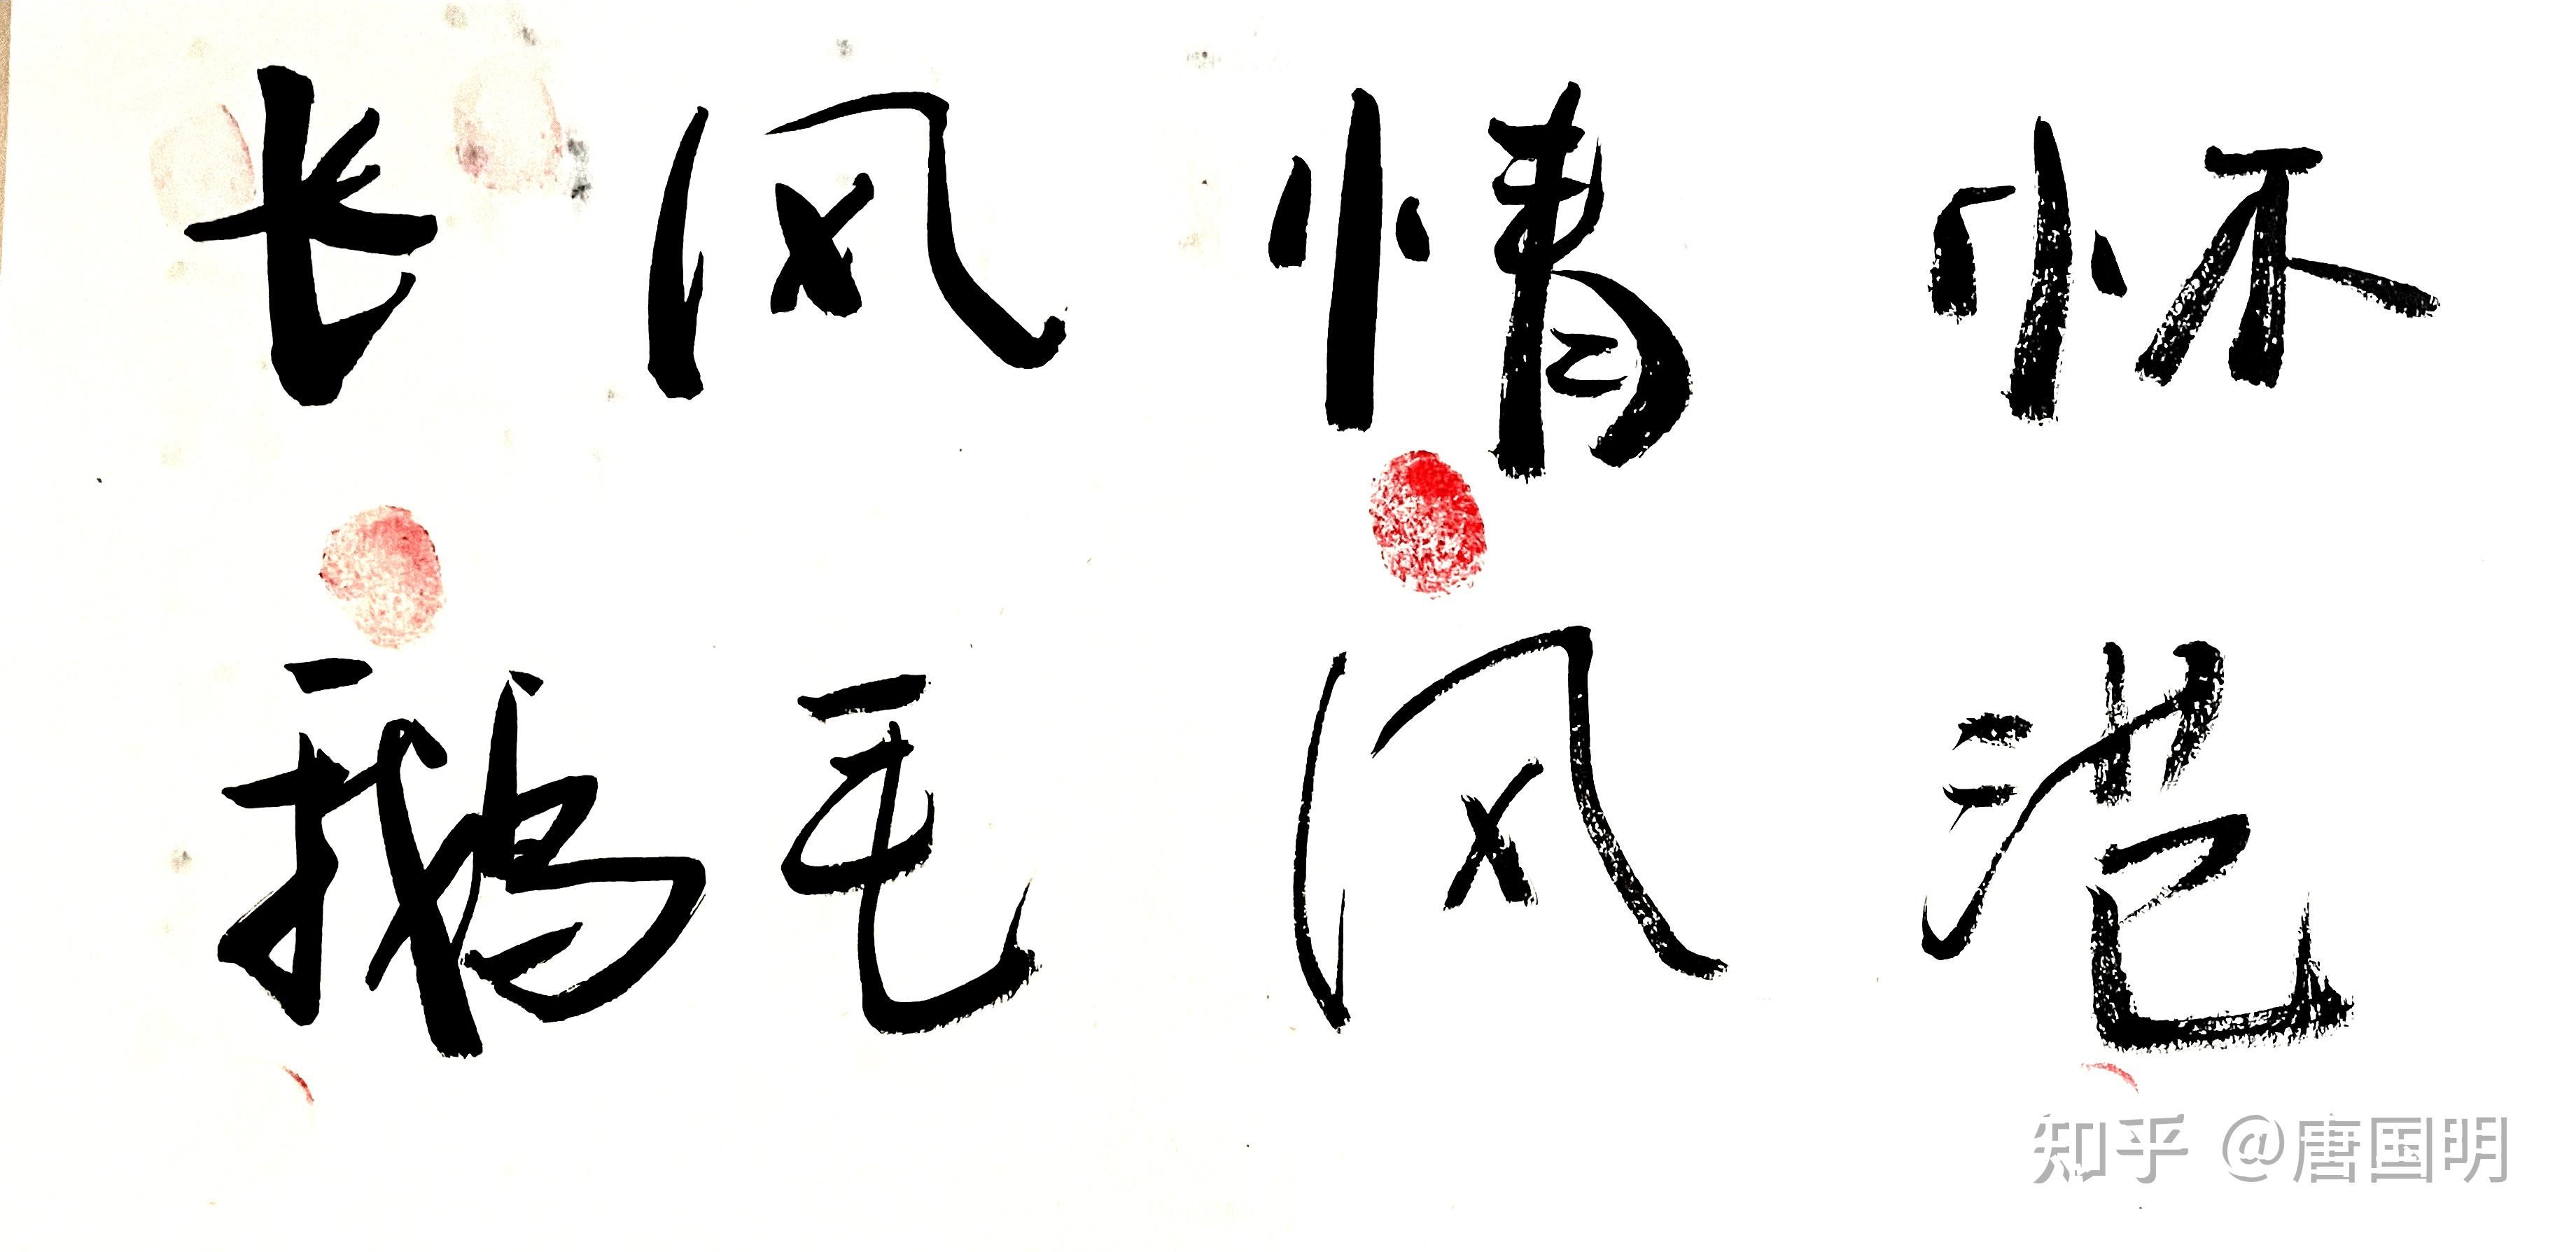 长风情怀
鹅毛风范
知乎 @唐国明